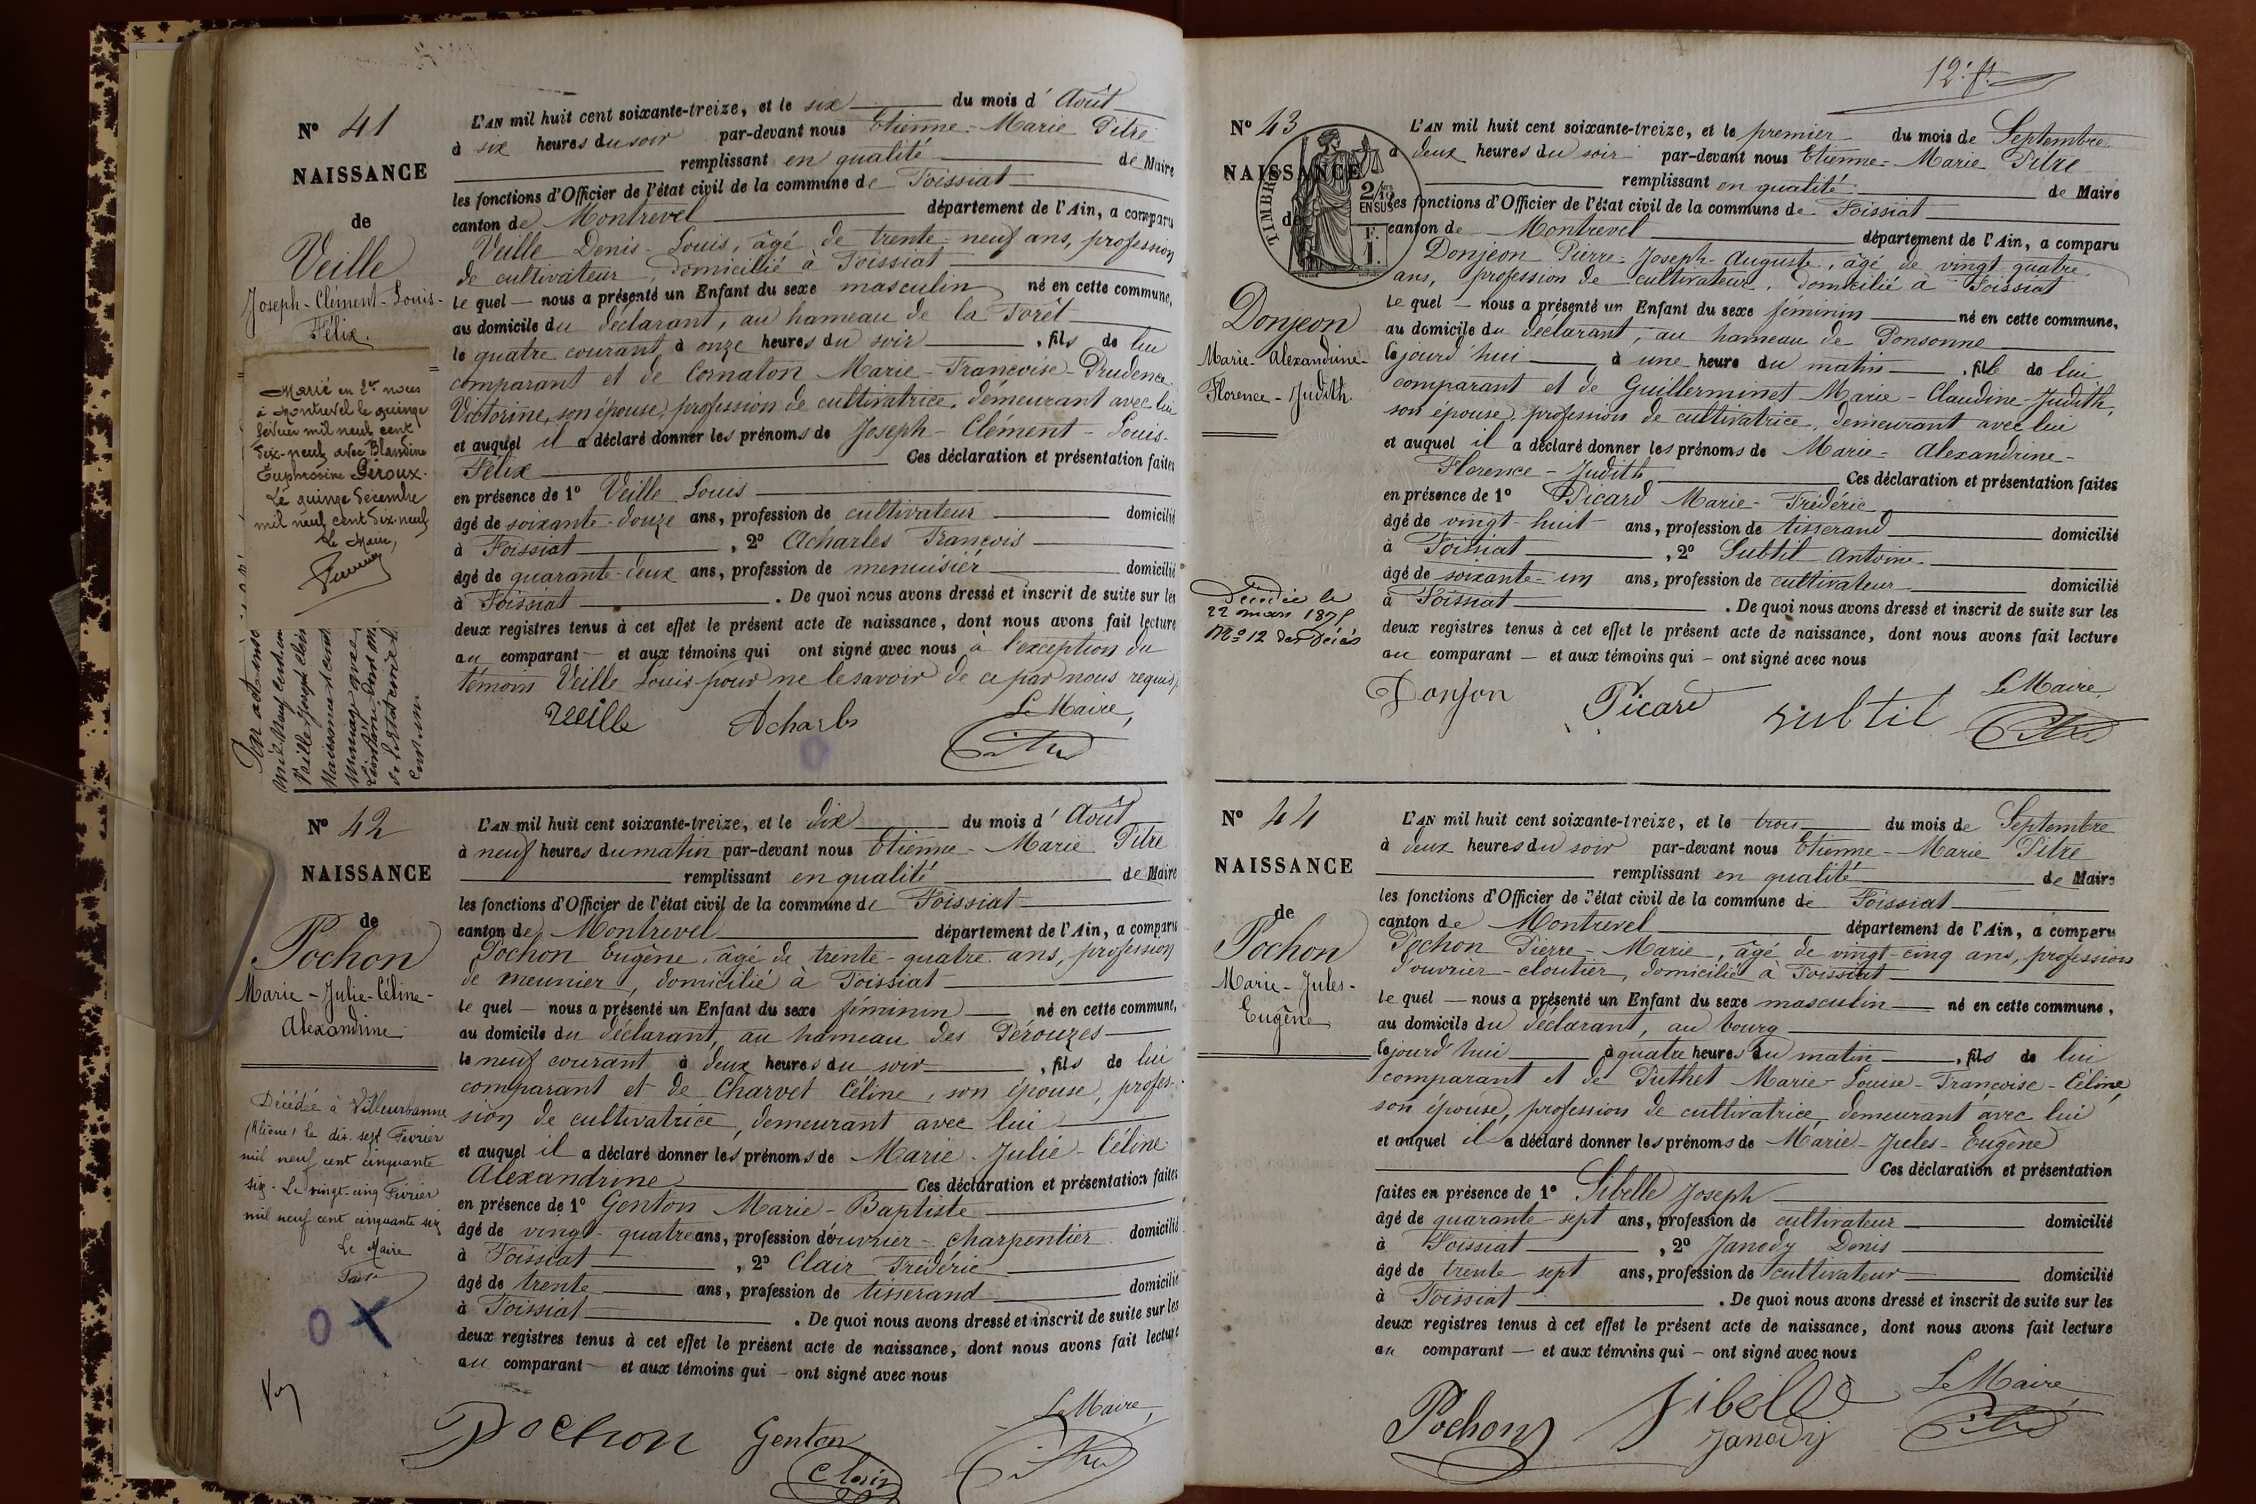 N° 41
NAISSANCE
de
Veille
Joseph-Clément-Louis-
Félix.
Marié en 1res noces
à Montrevel le quinze
février mil neuf cent
dix-neuf avec Blandine
Euphrosine Géroux.
Le quinze décembre
mil neuf cent dix-neuf
Le Maire,
Par acte
mil neuf cent
Veille Joseph
Naissance
mariage avec
de l'état civil
L'AN mil huit cent soixante-treize, et le six du mois d'Août
à six heures du soir par-devant nous Etienne-Marie Pitre
remplissant en qualité de Maire
les fonctions d'Officier de l'état civil de la commune de Foissiat
canton de Montrevel département de l'Ain, a comparu
Veille Denis-Louis, âgé de trente-neuf ans, profession
de cultivateur, domicilié à Foissiat
le quel nous a présenté un Enfant du sexe masculin né en cette commune,
au domicile du déclarant, au hameau de la Forêt
le quatre courant à onze heures du soir, fils de lui
comparant et de Cornaton Marie-Françoise-Prudence
Victorine, son épouse, profession de cultivatrice, demeurant avec lui
et auquel il a déclaré donner les prénoms de Joseph-Clément-Louis-
Félix Ces déclaration et présentation faites
en présence de 1° Veille Louis
âgé de soixante-douze ans, profession de cultivateur domicilié
à Foissiat, 2° Acharles François
âgé de quarante-deux ans, profession de menuisier domicilié
à Foissiat. De quoi nous avons dressé et inscrit de suite sur les
deux registres tenus à cet effet le présent acte de naissance, dont nous avons fait lecture
au comparant et aux témoins qui ont signé avec nous à l'exception du
témoin Veille Louis pour ne le savoir de ce par nous requis
Veille Acharles Le Maire,
Pitre
N° 42
NAISSANCE
de
Pochon
Marie-Julie-Céline-
Alexandrine
Décédée à Villeurbanne
(Rhône) le dix sept Février
mil neuf cent cinquante
six. Le vingt-cinq Février
mil neuf cent cinquante six
Le Maire
L'AN mil huit cent soixante-treize, et le dix du mois d'Août
à neuf heures du matin par-devant nous Etienne-Marie Pitre
remplissant en qualité de Maire
les fonctions d'Officier de l'état civil de la commune de Foissiat
canton de Montrevel département de l'Ain, a comparu
Pochon Eugène, âgé de trente-quatre ans, profession
de meunier, domicilié à Foissiat
le quel nous a présenté un Enfant du sexe féminin né en cette commune,
au domicile du déclarant, au hameau des Pérouzes
le neuf courant à deux heures du soir, fils de lui
comparant et de Charvet Céline, son épouse, profes-
sion de cultivatrice, demeurant avec lui
et auquel il a déclaré donner les prénoms de Marie-Julie-Céline-
Alexandrine Ces déclaration et présentation faites
en présence de 1° Genton Marie-Baptiste
âgé de vingt-quatre ans, profession d'ouvrier-charpentier domicilié
à Foissiat, 2° Clair Frédéric
âgé de trente ans, profession de tisserand domicilié
à Foissiat. De quoi nous avons dressé et inscrit de suite sur les
deux registres tenus à cet effet le présent acte de naissance, dont nous avons fait lecture
au comparant et aux témoins qui ont signé avec nous
Pochon Genton Le Maire,
Clair Pitre
12e ft
N° 43
NAISSANCE
de
TIMBRE
2/10 EN SUS
F. 1.
Donjeon
Marie-Alexandrine-
Florence-Judith.
Décédée le
22 mars 1875
N° 12 des Décès
L'AN mil huit cent soixante-treize, et le premier du mois de Septembre
à deux heures du soir par-devant nous Etienne-Marie Pitre
remplissant en qualité de Maire
les fonctions d'Officier de l'état civil de la commune de Foissiat
canton de Montrevel département de l'Ain, a comparu
Donjeon Pierre-Joseph-Auguste, âgé de vingt-quatre
ans, profession de cultivateur, domicilié à Foissiat
le quel nous a présenté un Enfant du sexe féminin né en cette commune,
au domicile du déclarant, au hameau de Ponsonne
cejourd'hui à une heure du matin, fille de lui
comparant et de Guillerminet Marie-Claudine-Judith,
son épouse, profession de cultivatrice, demeurant avec lui
et auquel il a déclaré donner les prénoms de Marie-Alexandrine-
Florence-Judith Ces déclaration et présentation faites
en présence de 1° Picard Marie-Frédéric
âgé de vingt-huit ans, profession de tisserand domicilié
à Foissiat, 2° Subtil Antoine
âgé de soixante-un ans, profession de cultivateur domicilié
à Foissiat. De quoi nous avons dressé et inscrit de suite sur les
deux registres tenus à cet effet le présent acte de naissance, dont nous avons fait lecture
au comparant et aux témoins qui ont signé avec nous
Donjon Picard Subtil Le Maire
Pitre
N° 44
NAISSANCE
de
Pochon
Marie-Jules-
Eugène
L'AN mil huit cent soixante-treize, et le trois du mois de Septembre
à deux heures du soir par-devant nous Etienne-Marie Pitre
remplissant en qualité de Maire
les fonctions d'Officier de l'état civil de la commune de Foissiat
canton de Montrevel département de l'Ain, a comparu
Pochon Pierre-Marie, âgé de vingt-cinq ans, profession
d'ouvrier-cloutier, domicilié à Foissiat
le quel nous a présenté un Enfant du sexe masculin né en cette commune,
au domicile du déclarant, au bourg
cejourd'hui à quatre heures du matin, fils de lui
comparant et de Puthet Marie-Louise-Françoise-Céline,
son épouse, profession de cultivatrice, demeurant avec lui
et auquel il a déclaré donner les prénoms de Marie-Jules-Eugène
Ces déclaration et présentation
faites en présence de 1° Sibelle Joseph
âgé de quarante-sept ans, profession de cultivateur domicilié
à Foissiat, 2° Janody Denis
âgé de trente-sept ans, profession de cultivateur domicilié
à Foissiat. De quoi nous avons dressé et inscrit de suite sur les
deux registres tenus à cet effet le présent acte de naissance, dont nous avons fait lecture
au comparant et aux témoins qui ont signé avec nous
Pochon Sibelle Le Maire
Janody Pitre